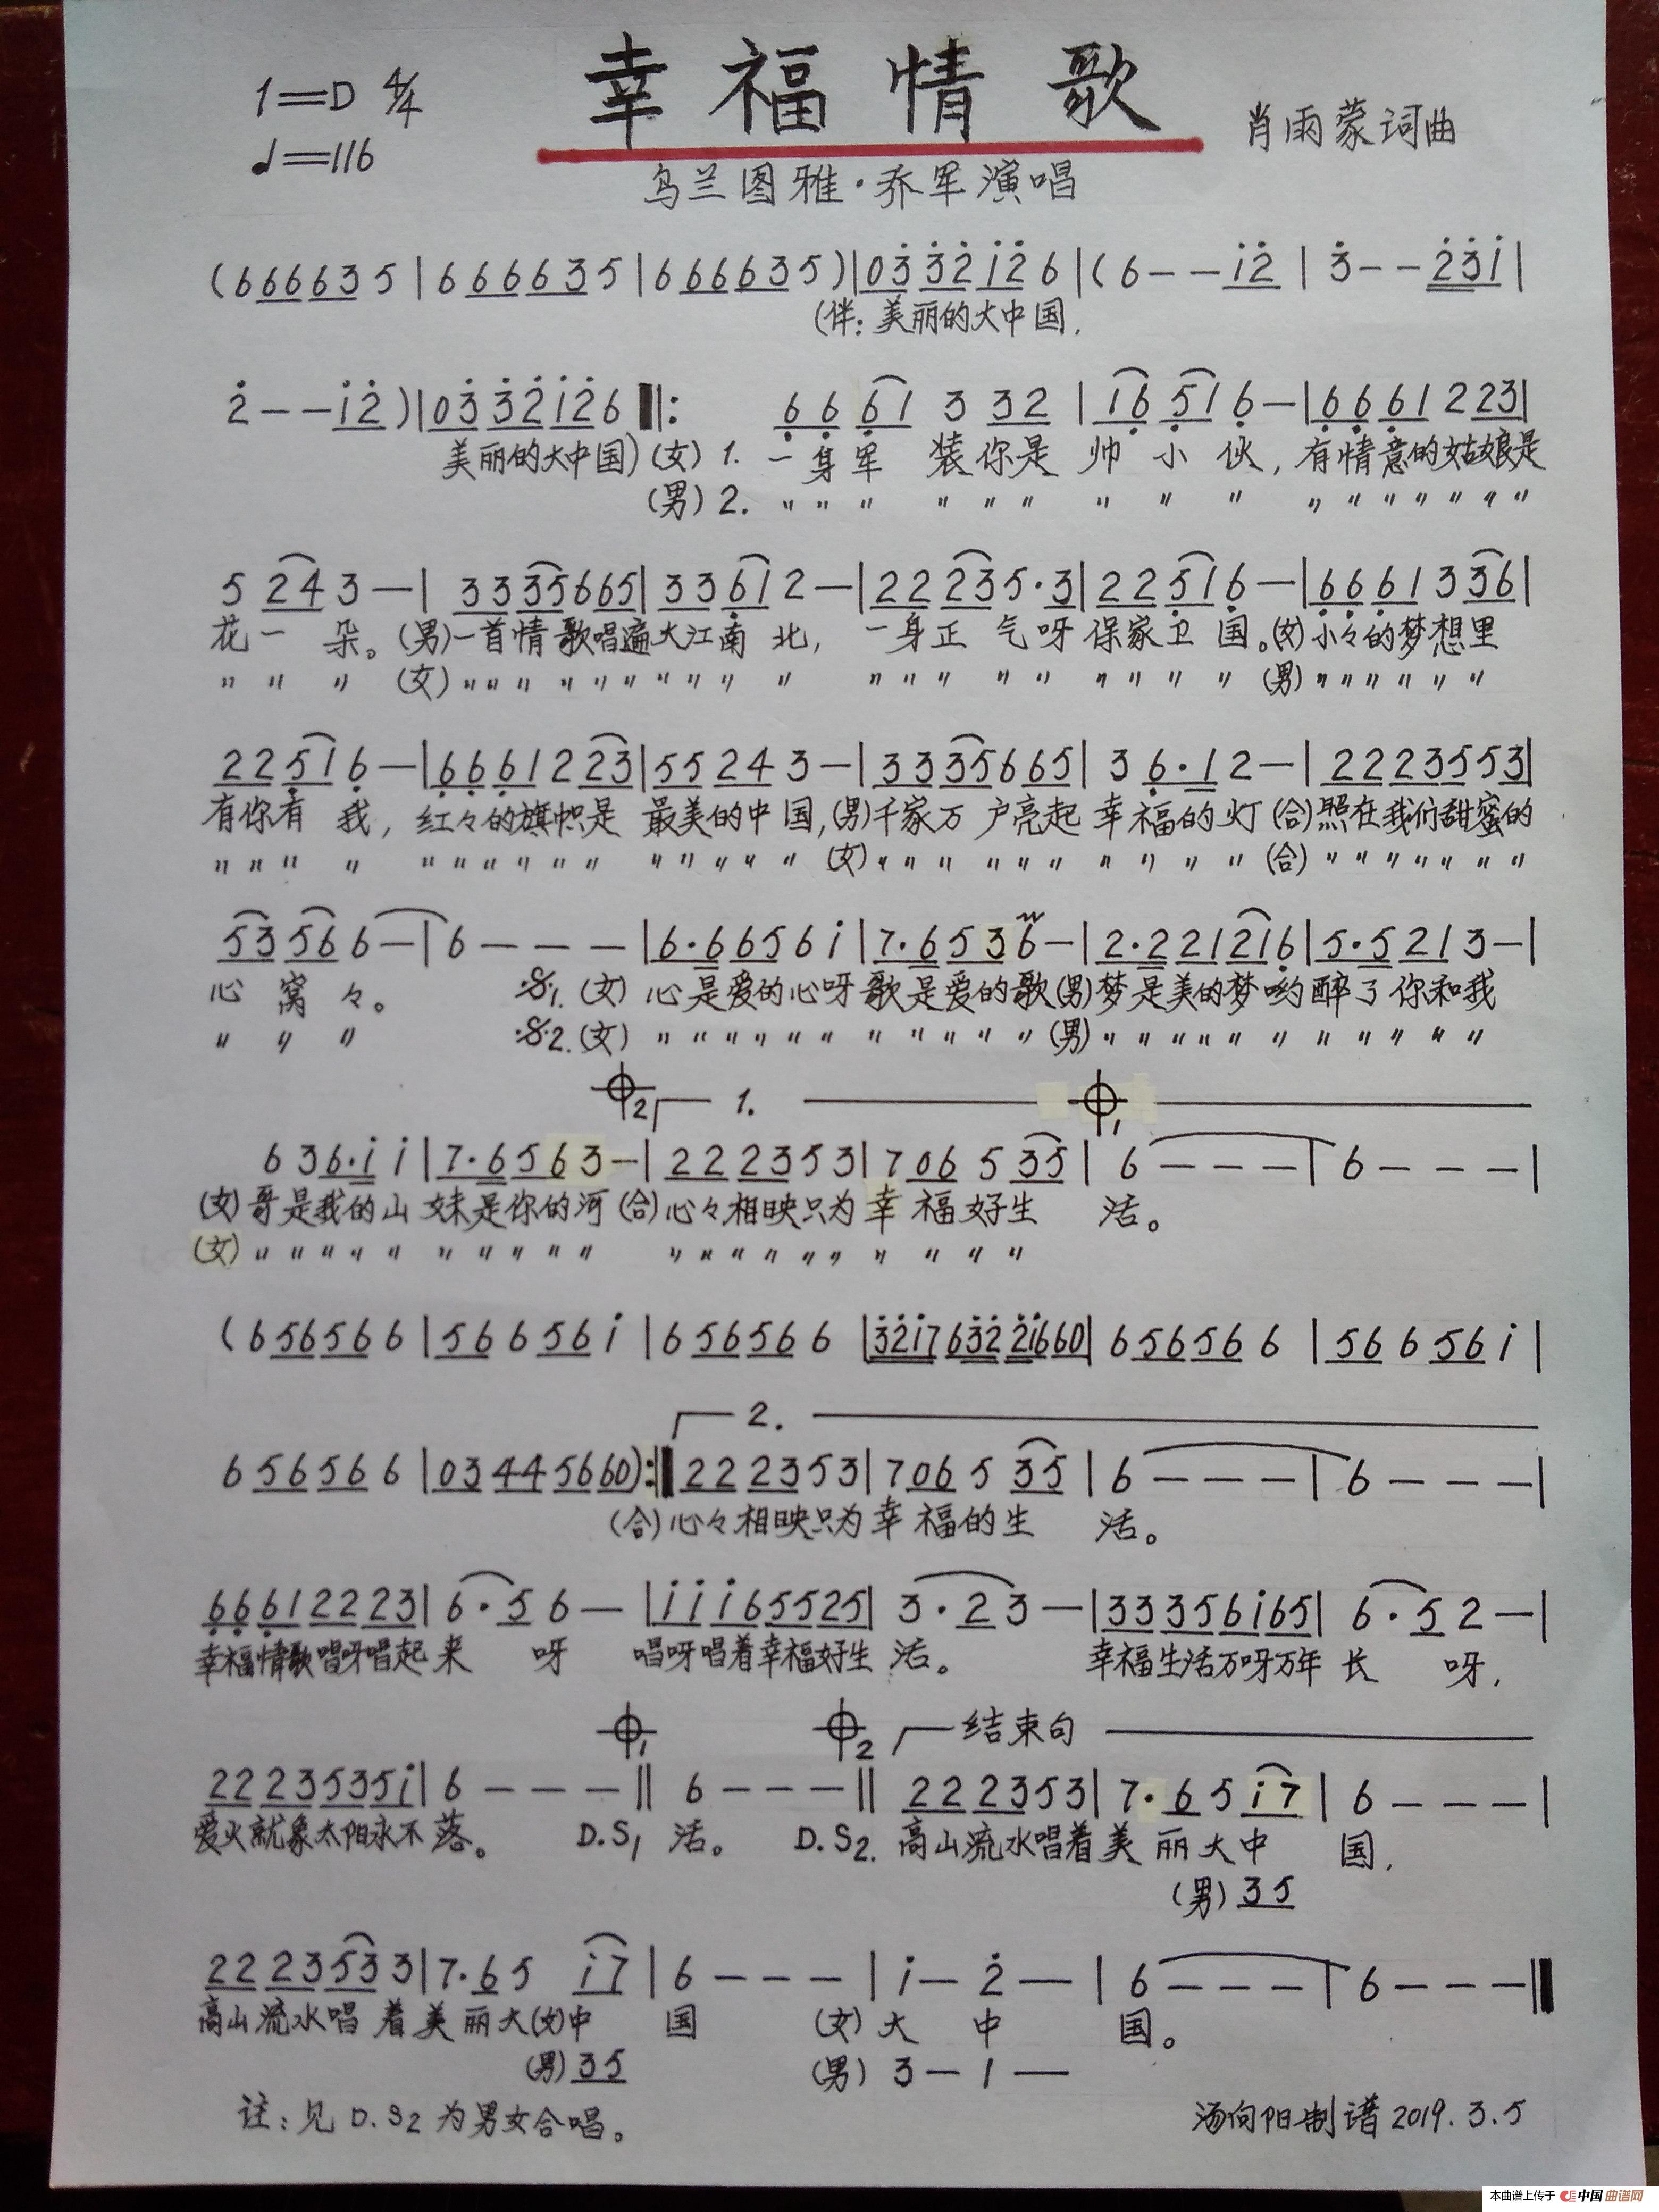 幸福情歌
1=D 4/4
♩=116
肖雨蒙词曲
乌兰图雅·乔军演唱
(6 6 6 6 6 3 5 | 6 6 6 6 6 3 5 | 6 6 6 6 6 3 5 ) | 0 3̇ 3̇ 2̇ 1̇ 2̇ 6 | ( 6 - - 1̇ 2̇ | 3̇ - - 2̇ 3̇ 1̇ |
(伴:美丽的大中国,
2̇ - - 1̇ 2̇ ) | 0 3̇ 3̇ 2̇ 1̇ 2̇ 6 ‖: 6̣ 6̣ 6̣ 1 3 3 2 | 1 6̣ 5̣ 1 6̣ - | 6̣ 6̣ 6̣ 1 2 2 3 |
美丽的大中国) (女) 1. 一身军 装你是 帅 小 伙, 有情意的姑娘是
(男) 2. 〃 〃 〃 〃 〃 〃 〃 〃 〃 〃 〃 〃 〃 〃 〃 〃
5 2 4 3 - | 3 3 3 5 6 6 5 | 3 3 6̣ 1 2 - | 2 2 2 3 5 · 3 | 2 2 5̣ 1 6̣ - | 6̣ 6̣ 6̣ 1 3 3 6 |
花 一 朵。(男)一首情歌唱遍大江南 北, 一身正 气呀 保家卫 国。(女)小々的梦想里
〃 〃 〃 (女) 〃 〃 〃 〃 〃 〃 〃 〃 〃 〃 〃 〃 〃 〃 〃 〃 〃 〃 〃 (男) 〃 〃 〃 〃 〃 〃
2 2 5̣ 1 6̣ - | 6̣ 6̣ 6̣ 1 2 2 3 | 5 5 2 4 3 - | 3 3 3 5 6 6 5 | 3 6̣ · 1 2 - | 2 2 2 3 5 5 3 |
有你有 我, 红々的旗帜是 最美的中国,(男)千家万 户亮起 幸福的灯 (合)照在我们甜蜜的
〃 〃 〃 〃 〃 〃 〃 〃 〃 〃 〃 〃 〃 〃 〃 (女) 〃 〃 〃 〃 〃 〃 〃 〃 〃 〃 (合) 〃 〃 〃 〃 〃 〃 〃
5 3 5 6 6 - | 6 - - - | 6 · 6 6 5 6 1̇ | 7 · 6 5 3 6 - | 2 · 2 2 1 2 1 6̣ | 5 · 5 2 1 3 - |
心 窝 々。 𝄋1. (女) 心是爱的心呀 歌是爱的歌(男)梦是美的梦哟 醉了你和我
〃 〃 〃 𝄋2. (女) 〃 〃 〃 〃 〃 〃 〃 〃 〃 〃 〃 (男) 〃 〃 〃 〃 〃 〃 〃 〃 〃 〃 〃
𝄌2 1. 𝄌1
6 3 6 · 1̇ 1̇ | 7 · 6 5 6 3 - | 2 2 2 3 5 3 | 7 0 6 5 3 5 | 6 - - - | 6 - - - |
(女)哥是我的山 妹是你的河 (合)心々相映只为 幸 福好生 活。
(女) 〃 〃 〃 〃 〃 〃 〃 〃 〃 〃 〃 〃 〃 〃 〃 〃 〃 〃 〃 〃
(6 5 6 5 6 6 | 5 6 6 5 6 1̇ | 6 5 6 5 6 6 | 3̇ 2̇ 1̇ 7 6 3̇ 2̇ 2̇ 1̇ 6 6 0 | 6 5 6 5 6 6 | 5 6 6 5 6 1̇ |
2.
6 5 6 5 6 6 | 0 3 4 4 5 6 6 0 ) :‖ 2 2 2 3 5 3 | 7 0 6 5 3 5 | 6 - - - | 6 - - - |
(合)心々相映只为 幸 福的生 活。
6̣ 6̣ 6̣ 1 2 2 2 3 | 6 · 5 6 - | 1̇ 1̇ 1̇ 6 5 5 2 5 | 3 · 2 3 - | 3 3 3 5 6 1̇ 6 5 | 6 · 5 2 - |
幸福情歌唱呀唱起 来 呀 唱呀唱着幸福好生 活。 幸福生活万呀万年 长 呀,
𝄌1 𝄌2 结束句
2 2 2 3 5 3 5 1̇ | 6 - - - ‖ 6 - - - ‖ 2 2 2 3 5 3 | 7 · 6 5 1̇ 7 | 6 - - - |
爱火就象太阳永不 落。 D.S1 活。 D.S2. 高山流水唱着 美 丽大中 国,
(男) 3 5
2 2 2 3 5 3 3 | 7 · 6 5 1̇ 7 | 6 - - - | 1̇ - 2̇ - | 6 - - - | 6 - - - ‖
高山流水唱 着美 丽大(女)中 国 (女) 大 中 国。
(男) 3 5 (男) 3 - 1 -
注:见 D.S2 为男女合唱。
汤向阳制谱 2019.3.5
本曲谱上传于 中国曲谱网